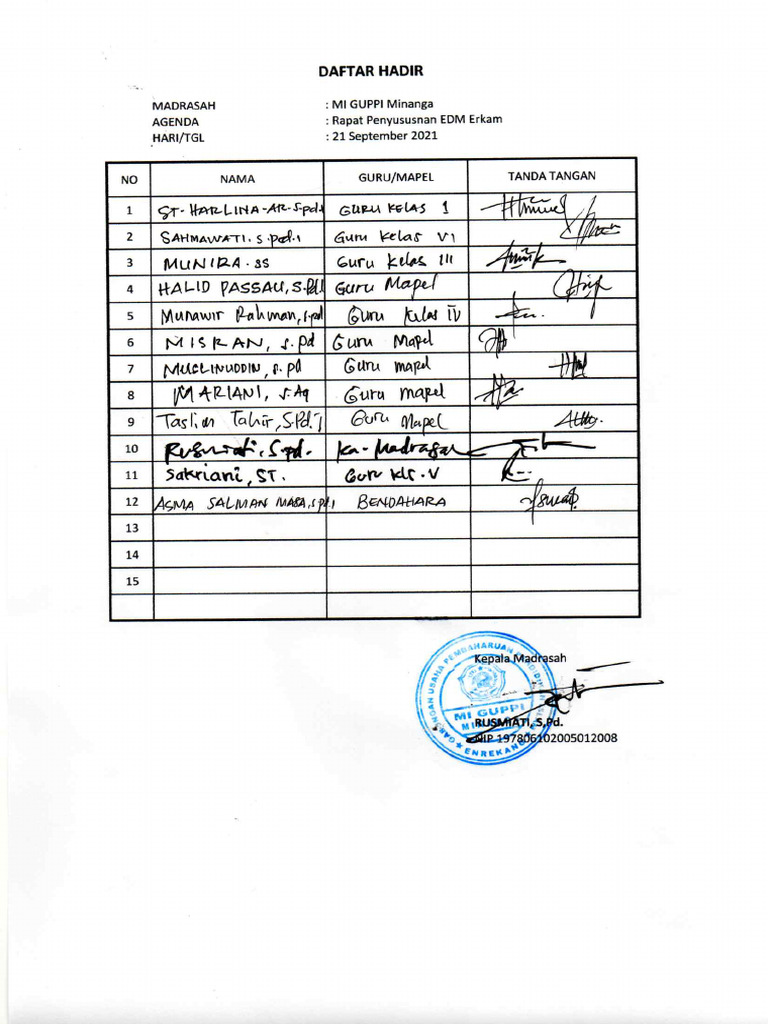 DAFTAR HADIR
MADRASAH : MI GUPPI Minanga
AGENDA : Rapat Penyususnan EDM Erkam
HARI/TGL : 21 September 2021
NO NAMA GURU/MAPEL TANDA TANGAN
1 ST. HARLINA. AR. S.pd.i GURU KELAS 1
2 SAHMAWATI. S.pd.i Guru Kelas VI
3 MUNIRA. SS Guru Kelas III
4 HALID PASSAU, S.Pd.I Guru Mapel
5 Munawir Rahman, S.pd Guru Kelas IV
6 MISRAN, S.Pd Guru Mapel
7 MUSLINUDDIN, S.pd Guru mapel
8 MARIANI, S.Ag Guru mapel
9 Taslim Tahir, S.Pd.I Guru Mapel
10 Rusmiati, S.pd. Ka. Madrasah
11 Sakriani, ST. Guru Kls. V
12 ASMA SALMAN MASA, S.pd.i BENDAHARA
13
14
15
Kepala Madrasah
GABUNGAN USAHA PEMBAHARUAN PENDIDIKAN
MI GUPPI
ENREKANG
RUSMIATI, S,Pd.
NIP 197806102005012008